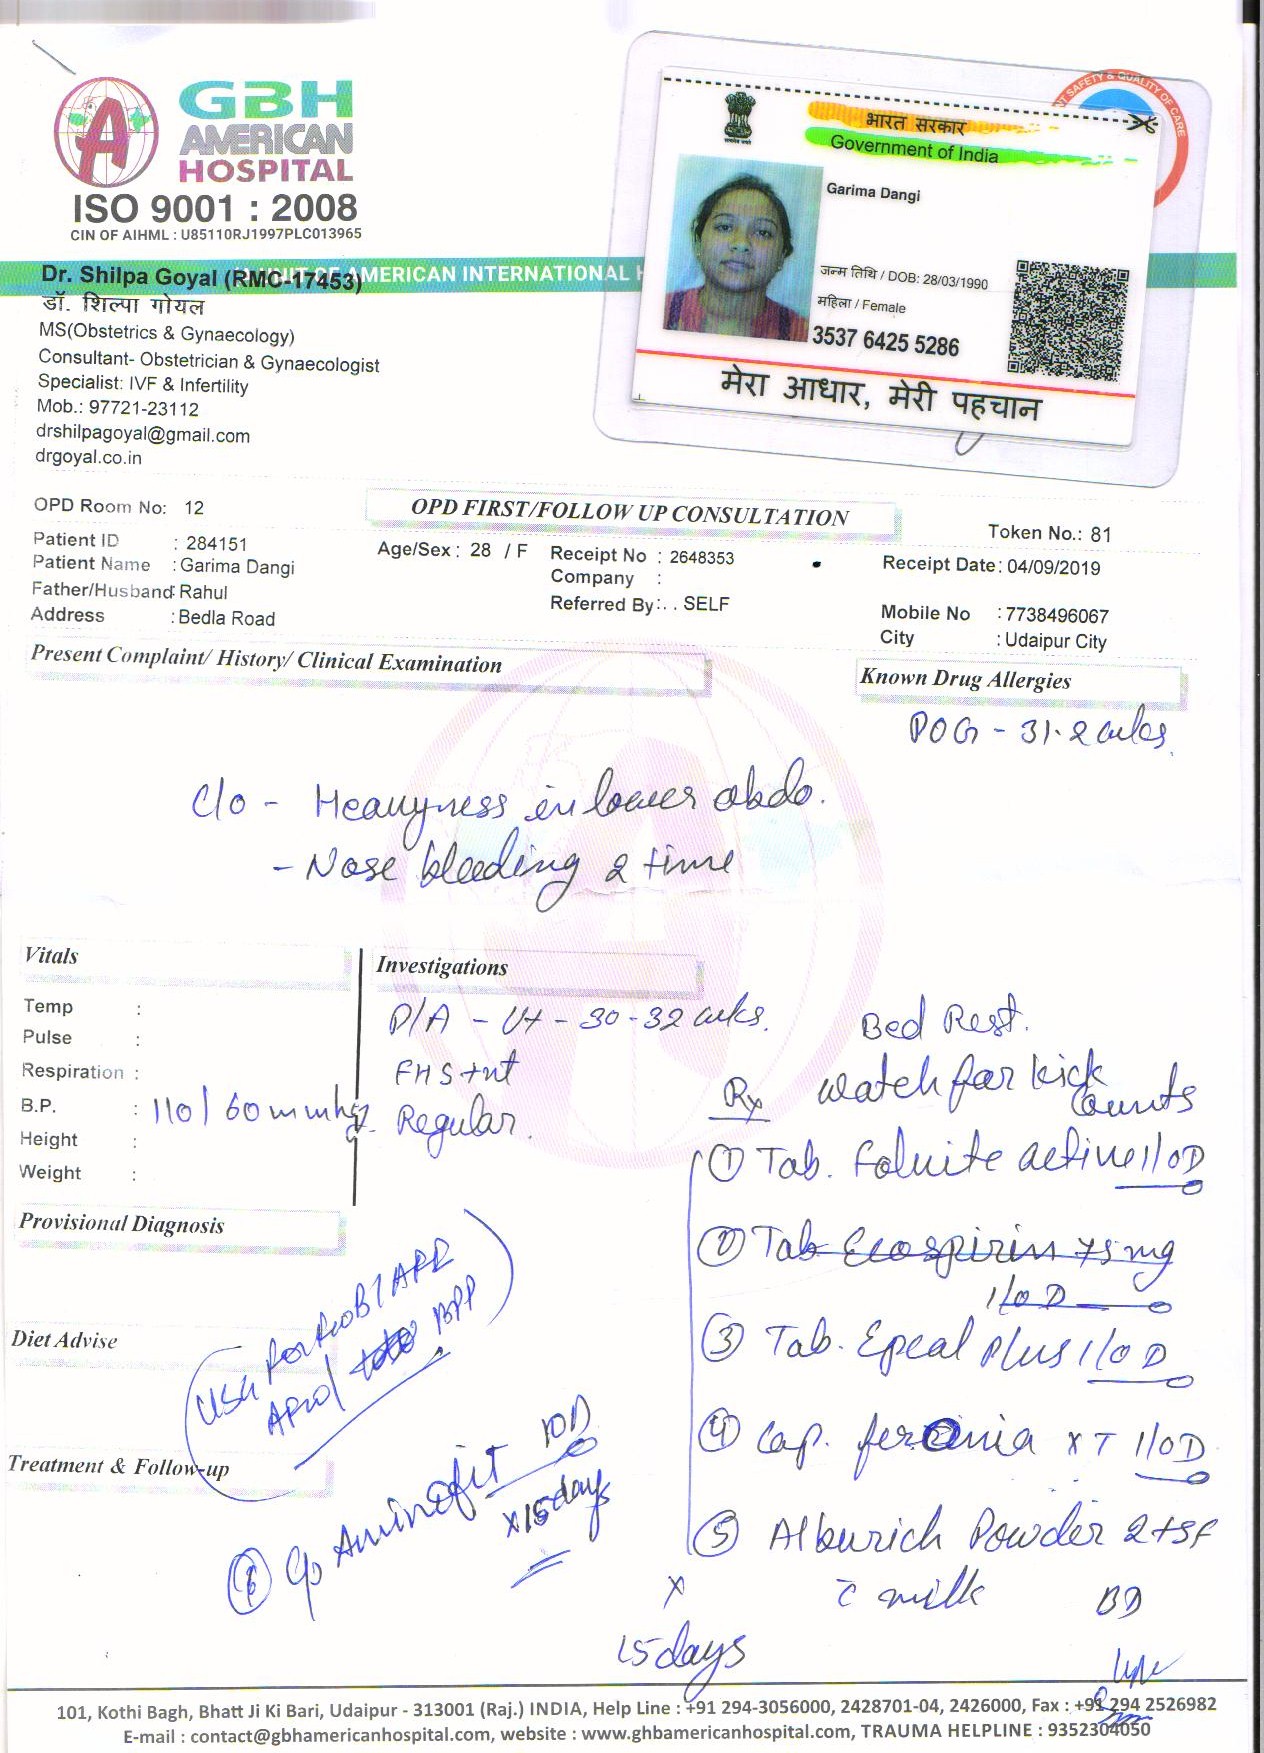 GBH
AMERICAN
HOSPITAL
ISO 9001 : 2008
CIN OF AIHML : U85110RJ1997PLC013965
SAFETY & QUALITY OF CARE
भारत सरकार
Government of India
Garima Dangi
जन्म तिथि / DOB: 28/03/1990
महिला / Female
3537 6425 5286
मेरा आधार, मेरी पहचान
UNIT OF AMERICAN INTERNATIONAL
Dr. Shilpa Goyal (RMC-17453)
डॉ. शिल्पा गोयल
MS(Obstetrics & Gynaecology)
Consultant- Obstetrician & Gynaecologist
Specialist: IVF & Infertility
Mob.: 97721-23112
drshilpagoyal@gmail.com
drgoyal.co.in
OPD Room No: 12
OPD FIRST/FOLLOW UP CONSULTATION
Token No.: 81
Patient ID : 284151
Age/Sex : 28 / F
Receipt No : 2648353
Receipt Date: 04/09/2019
Patient Name : Garima Dangi
Company :
Father/Husband: Rahul
Referred By: . . SELF
Mobile No : 7738496067
Address : Bedla Road
City : Udaipur City
Present Complaint/ History/ Clinical Examination
Known Drug Allergies
POG - 31.2 wks.
C/o - Heavyness in lower abdo.
- Nose bleeding 2 time
Vitals
Investigations
Temp :
Pulse :
Respiration :
B.P. : 110/60 mmhg
Height :
Weight :
P/A - Ut - 30-32 wks.
FHS+nt
Regular.
Bed Rest.
Rx watch for kick counts
① Tab. Folnite active 1/OD
② Tab Ecospirin 75 mg
1/OD
③ Tab. Epeal Plus 1/OD
④ Cap. feronia XT 1/OD
⑤ Alburich Powder 2tsf
c̄ milk BD
x
15 days
Provisional Diagnosis
Diet Advise
Treatment & Follow-up
BPP
⑥ Cap Aminofit 1OD
x15 days
101, Kothi Bagh, Bhatt Ji Ki Bari, Udaipur - 313001 (Raj.) INDIA, Help Line : +91 294-3056000, 2428701-04, 2426000, Fax : +91 294 2526982
E-mail : contact@gbhamericanhospital.com, website : www.ghbamericanhospital.com, TRAUMA HELPLINE : 9352304050